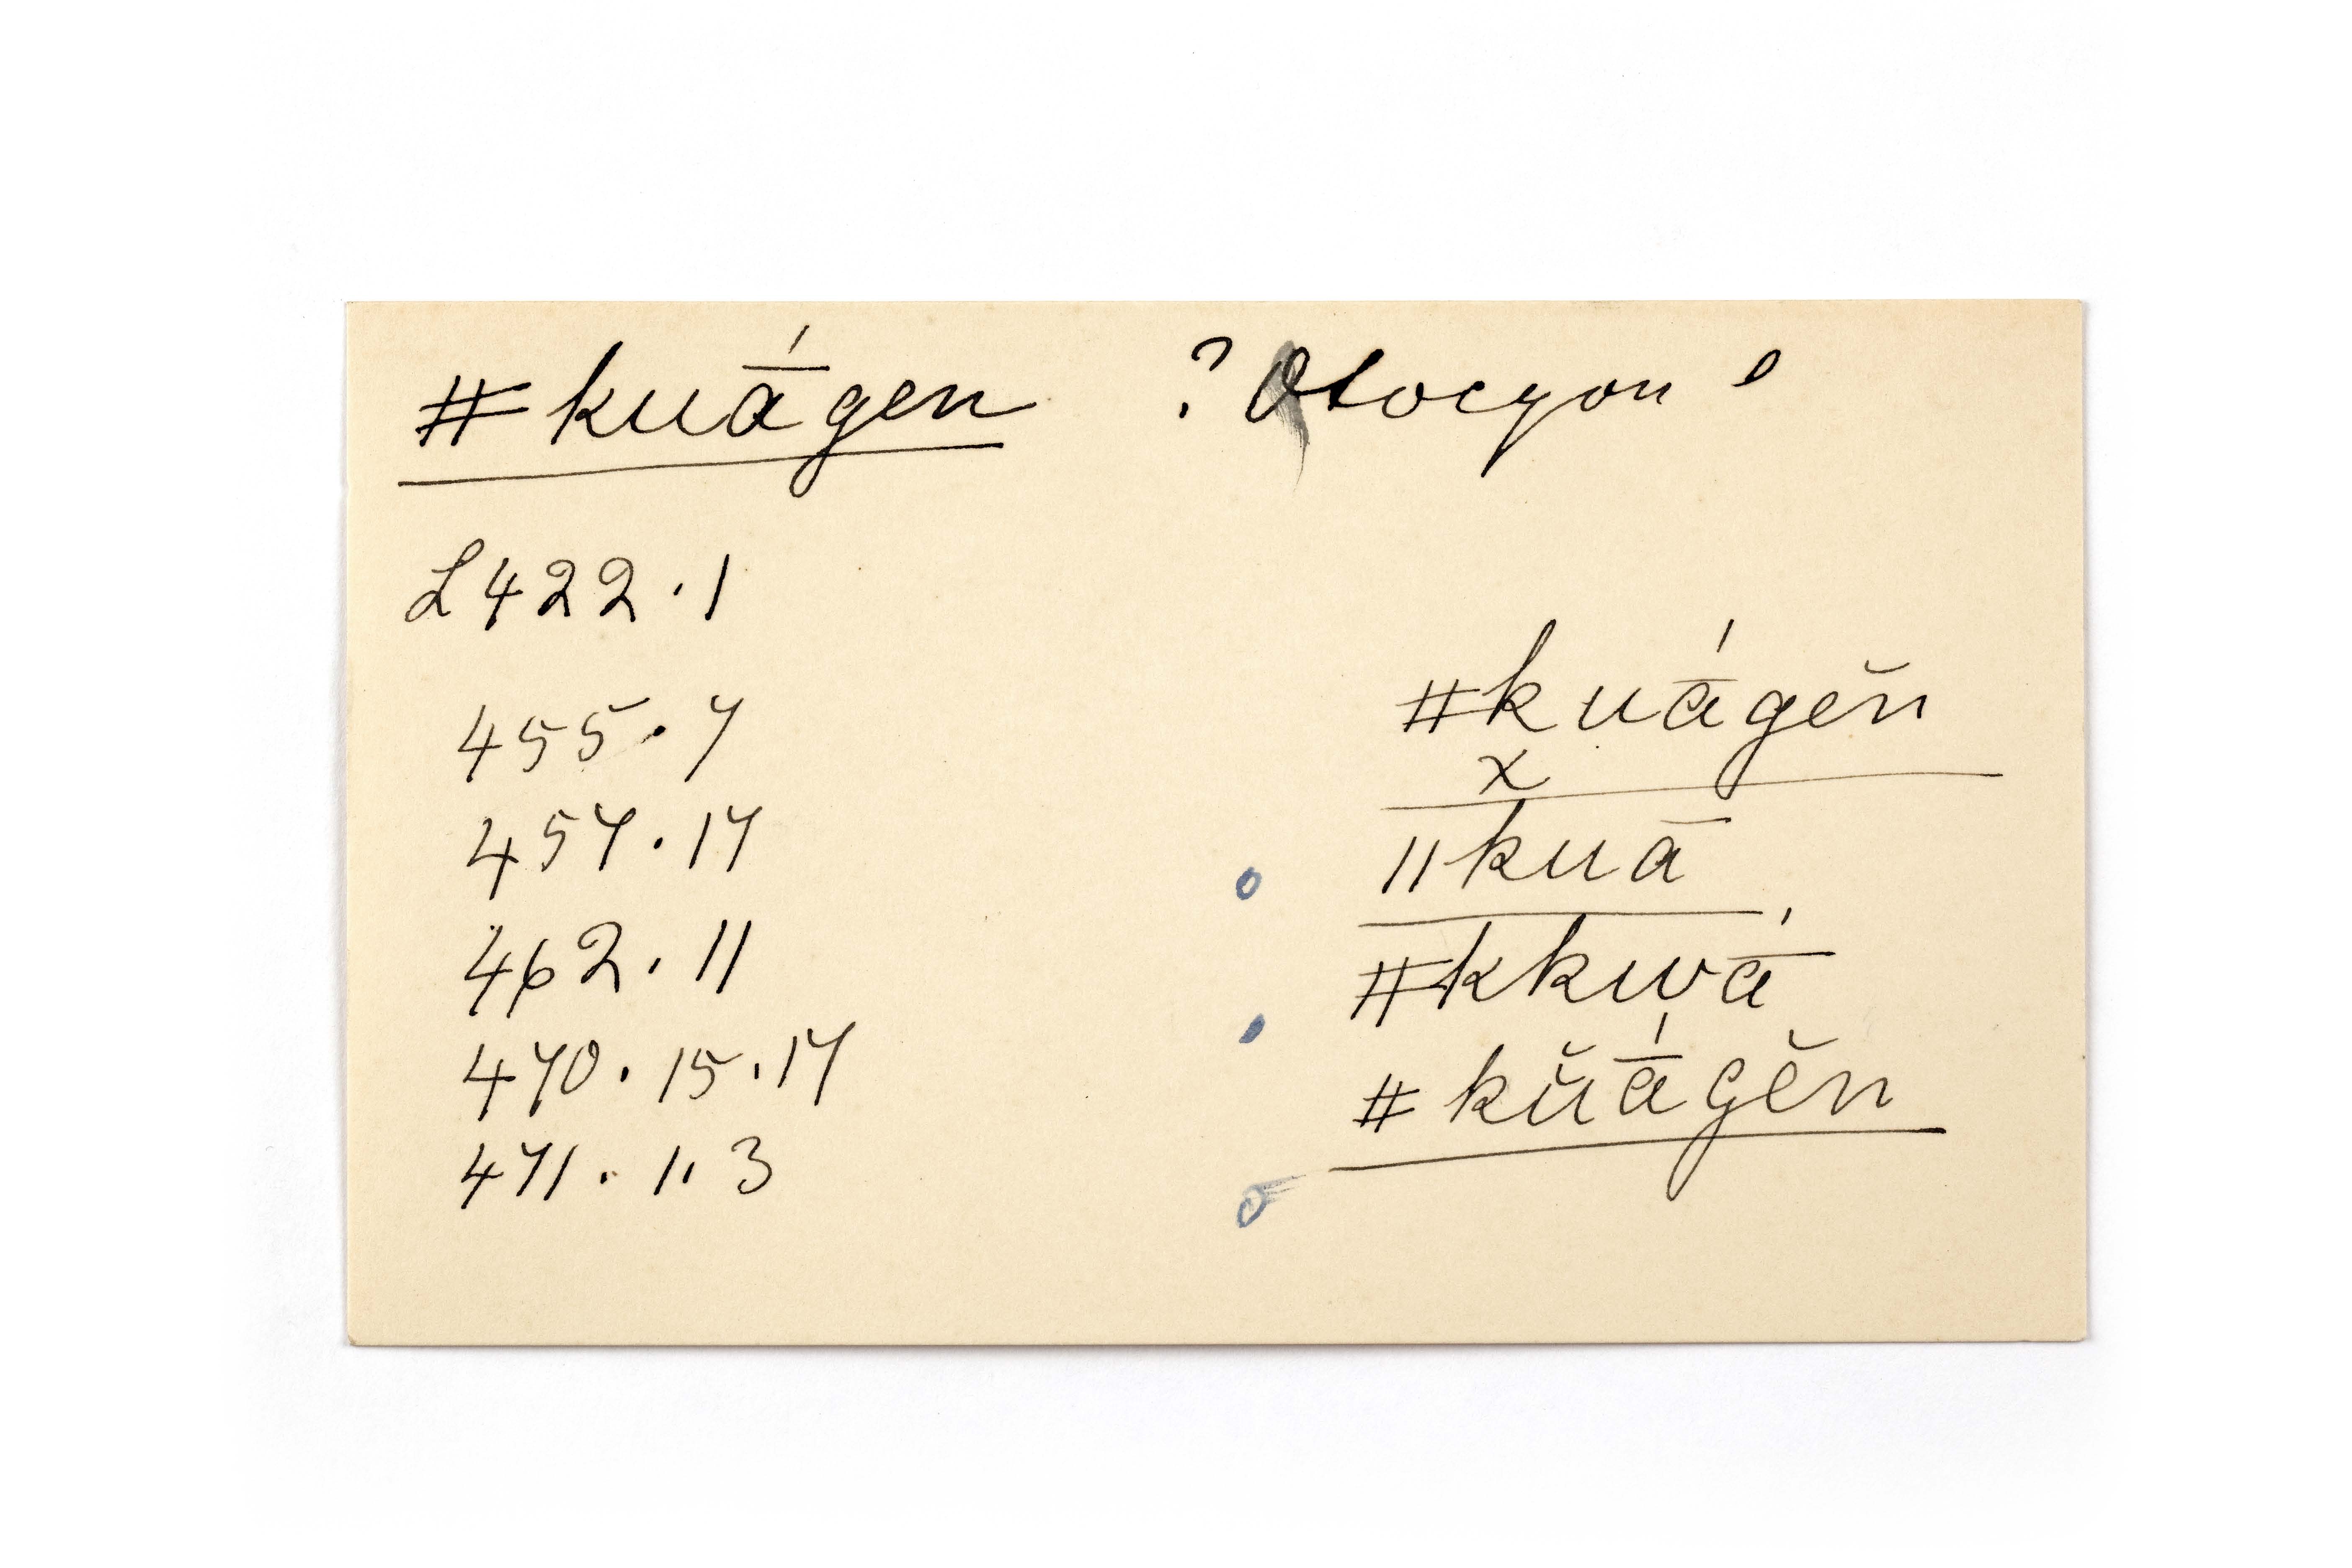 #kuā́gen ?Otocyon
L422.1
455.7
457.17
462.11
470.15.17
471.1.3
#kuā́gĕn
x
ǁkuā
#kkwā́
#kŭā́gĕn